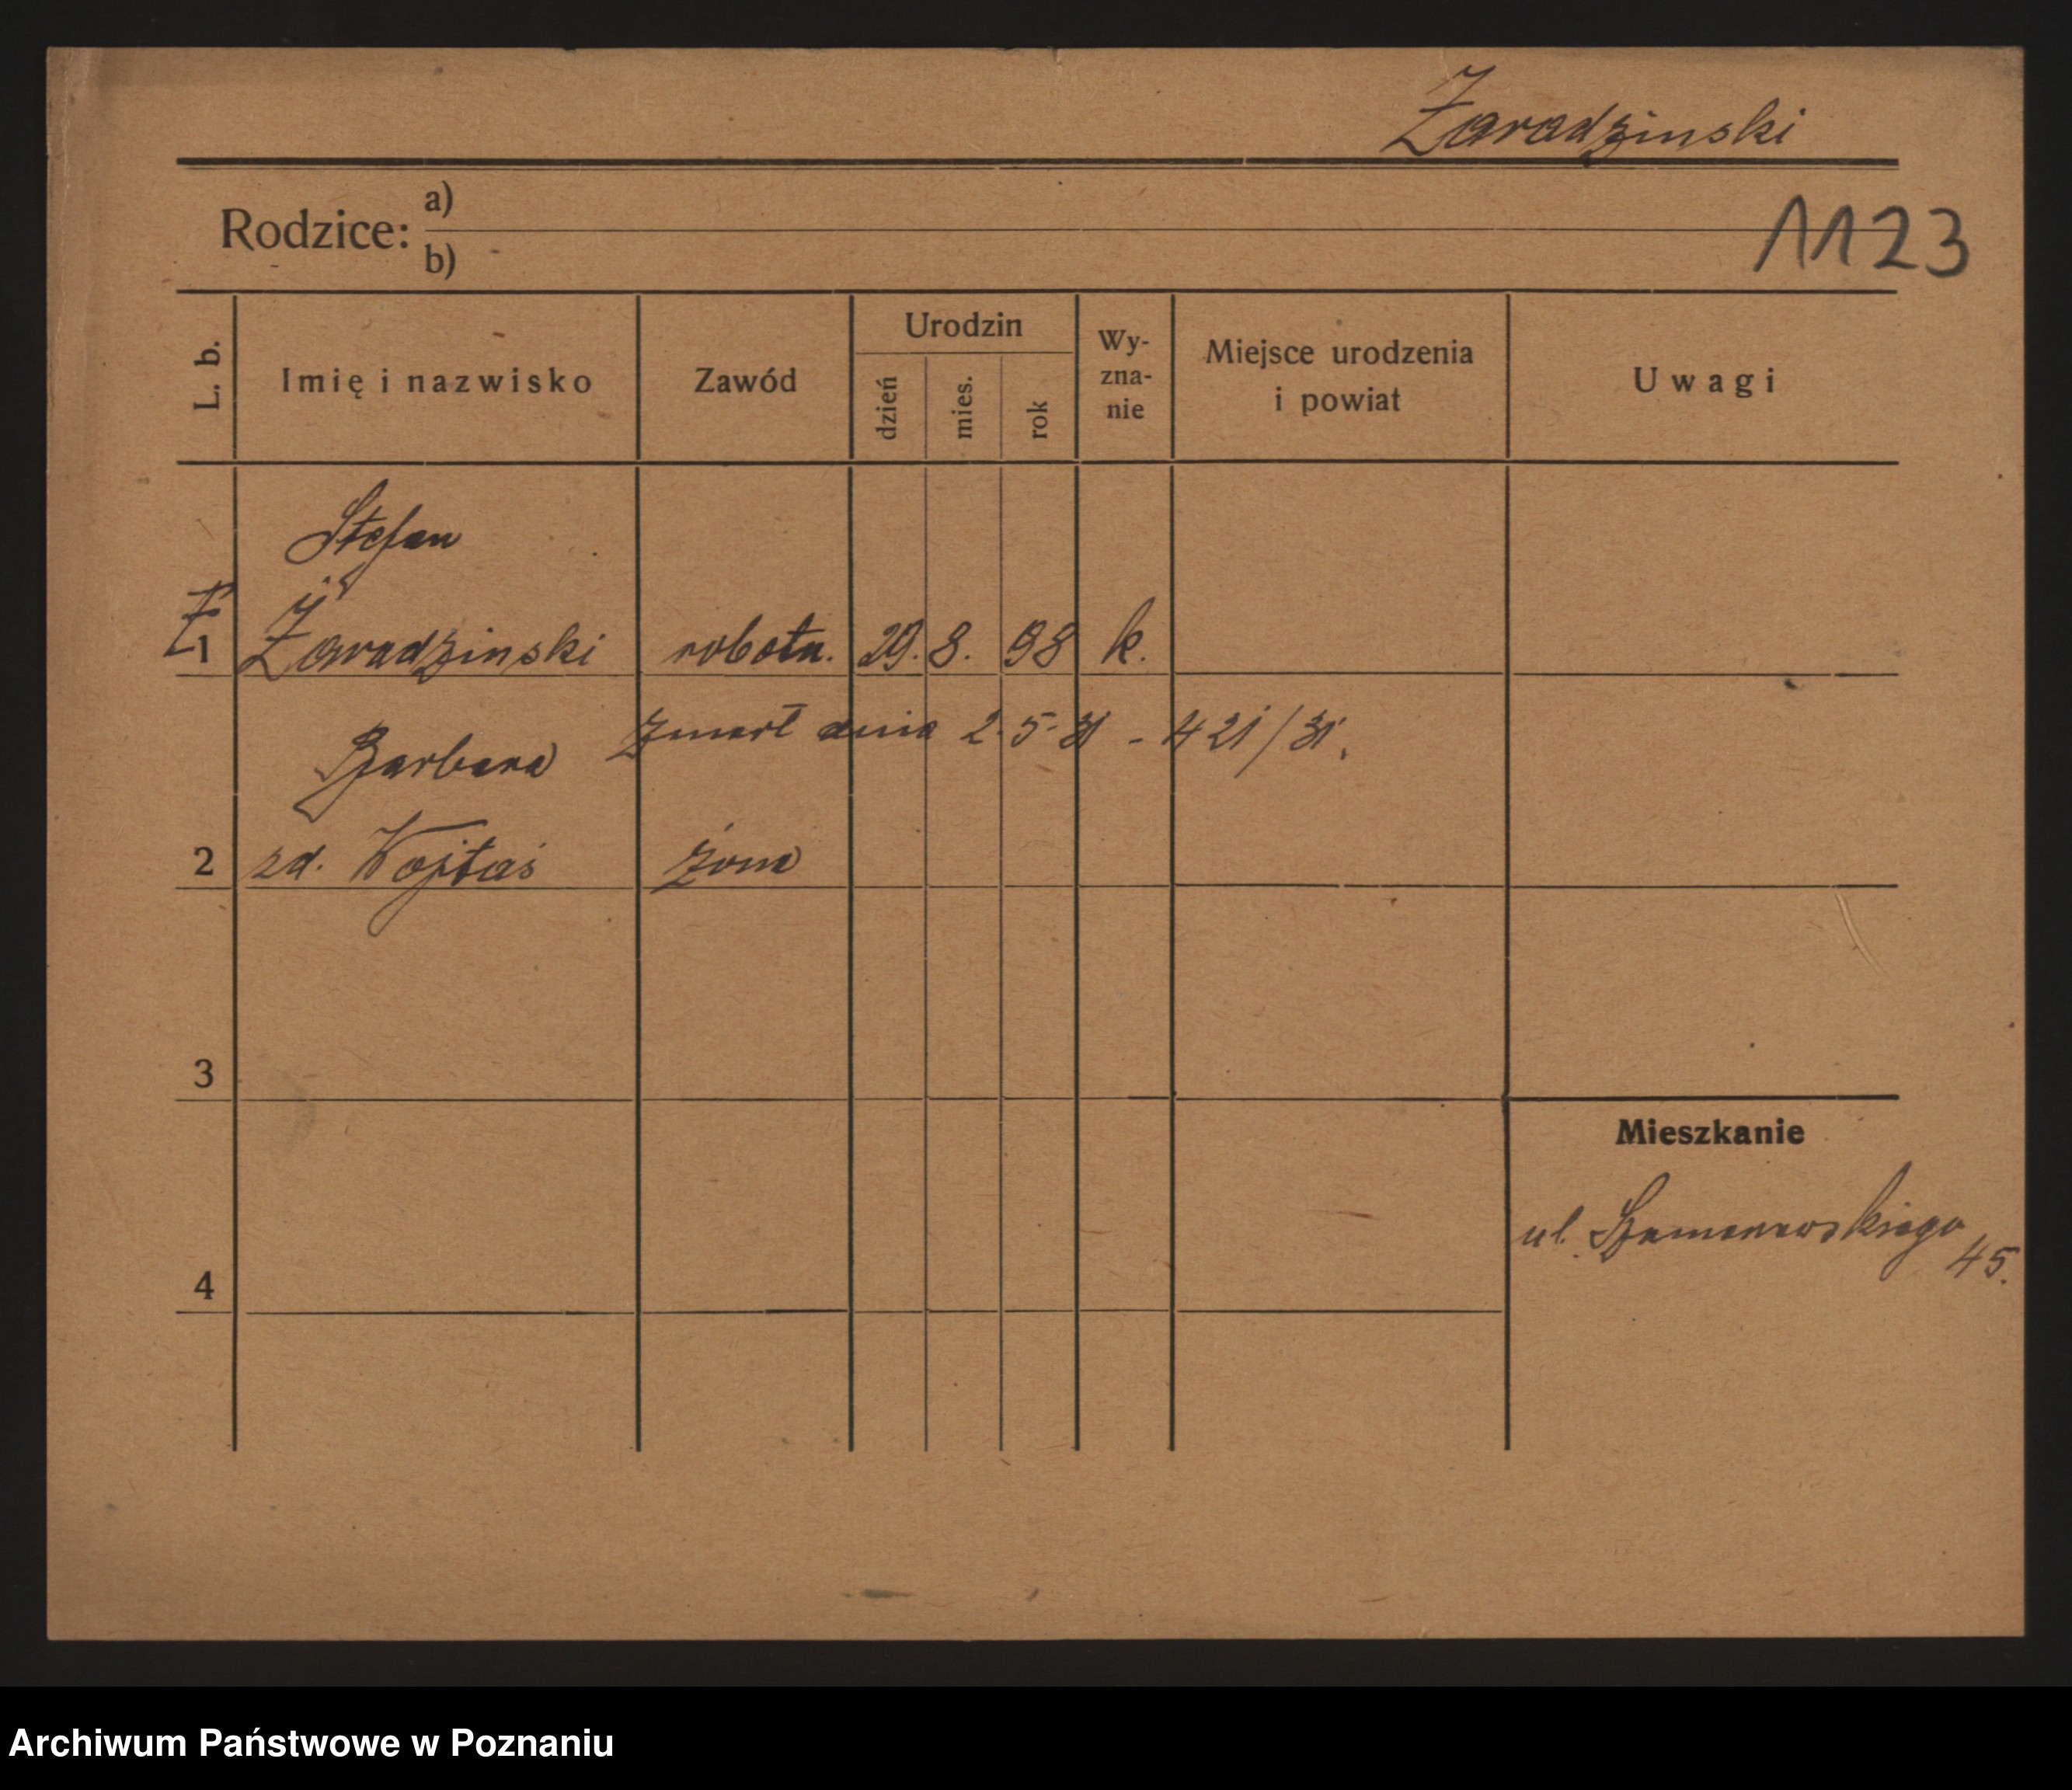 Żaradzinski
1123
Rodzice: a)
b)
L. b.
Imię i nazwisko
Zawód
Urodzin
dzień
mies.
rok
Wy-
zna-
nie
Miejsce urodzenia
i powiat
Uwagi
Stefan
1 Żaradzinski robotn. 29. 8. 98 k.
Zmarł dnia 2.5.31 - 421/31.
Barbara
2 zd. Wojtaś żona
3
Mieszkanie
ul. 45.
4
Archiwum Państwowe w Poznaniu